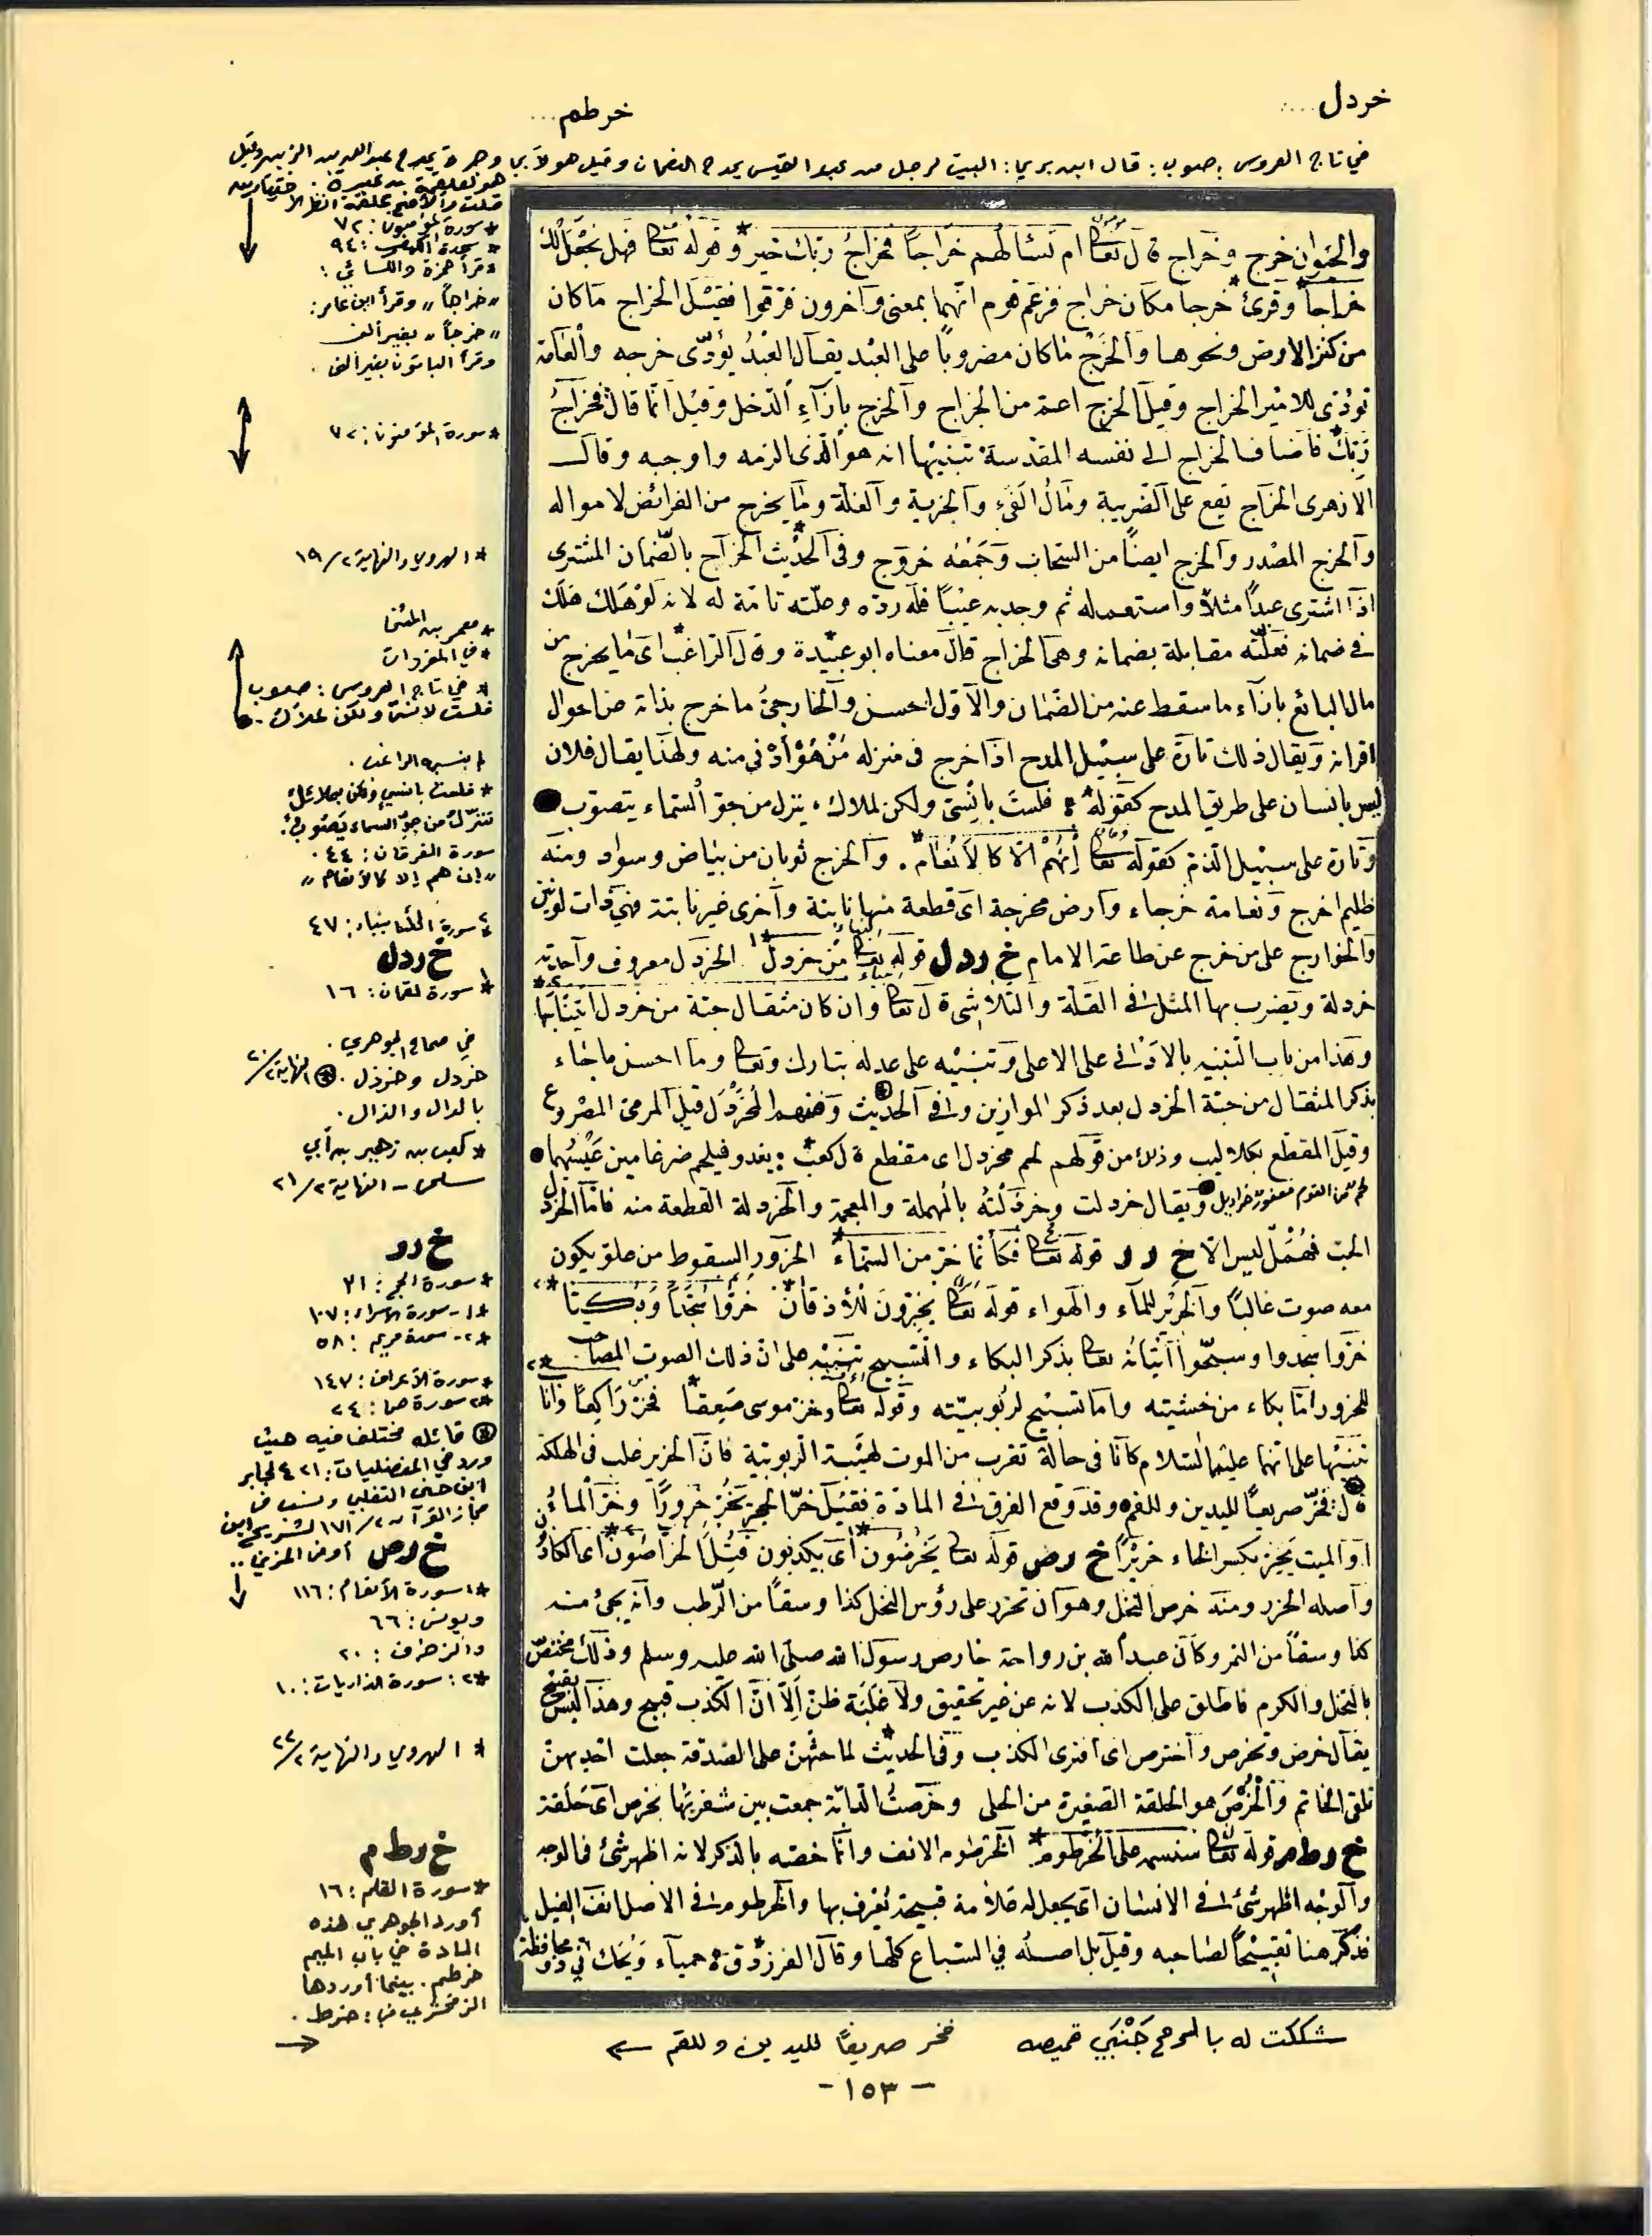 خردل ....
خرطم ...
في تاج العروس : صوب : قال ابن بري : البيت لرجل من عبد القيس يمدح النعمان وقيل هو لأبي وجزة يمدح عبد الله بن الزبير وقيل
هو لعلقمة بن عبدة .
والخوان خرج وخراج قال تعالى ام تسئالهم خراجاً فخراج ربك خير * وقوله تعالى فهل نجعل لك
خراجاً * وقرئ خرجا مكان خراج فزعم قوم انهما بمعنى وآخرون فرقوا فقيل الخراج ما كان
من كنز الارض ونحوها والخرج ما كان مضروباً على العبد يقال العبد يؤدى خرجه والعامة
تؤدى للامير الخراج وقيل الخرج اعم من الخراج والخرج بازآء الدخل وقيل انما قال فخراج
ربك * فأضاف الخراج الى نفسه المقدسة تنبيها انه هو الذى الزمه واوجبه وقال
الازهرى الخراج يقع على الضريبة ومال الفئ والجزية والغلة وما يخرج من الفرائض لامواله
والخرج المصدر والخرج ايضاً من السحاب وجمعه خروج وفى الحديث * الخراج بالضمان المشترى
اذا اشترى عبداً مثلاً واستعمله ثم وجد به عيباً فله رده وغلته تامة له لانه لو هلك هلك
فى ضمانه فغلته مقابلة بضمانه وهى الخراج قال معناه ابو عبيدة * وقال الراغب * اى ما يخرج من
مال البائع بازآء ما سقط عنه من الضمان والاول احسن والخارجى ما خرج بذاته من احوال
اقرانه ويقال ذلك تارة على سبيل المدح اذا خرج فى منزله من هو أدنى منه ولهذا يقال فلان
ليس بانسان على طريق المدح كقوله * فلست بانسى ولكن لملاك ، ينزل من جو السماء يتصوب
وتارة على سبيل الذم كقوله تعالى إنهم الا كالانعام * . والخرج ثوبان من بياض وسواد ومنه
ظليم اخرج ونعامة خرجاء وارض مخرجة اى قطعة منها نابتة وآخرى غير نابتة فهى ذات لونين
والخوارج على من خرج عن طاعة الامام خ ر د ل قوله تعالى من خردل *١ الخردل معروف وآحدته
خردلة ويضرب بها المثل فى القلة والتلاشى قال تعالى وان كان مثقال حبة من خردل اتينا بها *٢
وهذا من باب التنبيه بالادنى على الاعلى وتنبيه على عدله تبارك وتعالى وما احسن ما جاء
بذكر المثقال من حبة الخردل بعد ذكر الموازين وفى الحديث ومنهم المخردل قيل المرمى المصروع
وقيل المقطع بكلاليب وذلك من قولهم لحم مخردل اى مقطع قال كعب * : يغدو فيلحم ضرغامين عيشهما
لحم من القوم معفور خراديل ويقال خردلت وخرذلته بالمهملة والمعجمة والخردلة القطعة منه فاما الخردل
الحب فمهمل ليس الا خ ر ر قوله تعالى فكأنما خر من السماء * الخرور السقوط من علو يكون
معه صوت غالباً والخرير للماء والهواء قوله تعالى يخرون للأذقان *١ خروا سجداً وبكيا *٢
خروا سجدوا وسبحوا اتيانه تعالى بذكر البكاء والتسبيح تنبيه على ان ذلك الصوت المصاحب
للخرور اما بكاء من خشيته واما تسبيح لربوبيته وقوله تعالى وخر موسى صعقا * فخر راكعا وأناب *٢
تنبيها على انهما عليهما السلام كانا فى حالة تقرب من الموت لهيبة الربوبية فان الخرير غلب فى الهلكة
قال : فخر صريعاً لليدين وللفم وقد وقع الفرق فى المادة فقيل خر الحجر يخر خروراً وخر الماء
او الميت يخر بكسر الخاء خريراً خ ر ص قوله تعالى يخرصون *١ أى يكذبون قتل الخراصون *٢ اى الكاذبون
وأصله الحزر ومنه خرص النخل وهو أن تحزر على رؤس النخل كذا وسقاً من الرطب وأنه يجئ منه
كذا وسقاً من التمر وكان عبد الله بن رواحة خارص رسول الله صلى الله عليه وسلم وذلك مختص
بالنخل والكرم فاطلق على الكذب لانه عن غير تحقيق ولا غلبة ظن إلا ان الكذب قبيح وهذا ليس بقبيح
يقال خرص وتخرص وأخترص اى افترى الكذب وفى الحديث * لما حثهن على الصدقة جعلت احديهن
تلقى الخاتم والخرص هو الحلقة الصغيرة من الحلى وخرصت الدابة جمعت بين شفريها بخرص اى حلقة
خ ر ط م قوله تعالى سنسمه على الخرطوم * الخرطوم الانف وانما خصه بالذكر لانه اظهر شئ فى الوجه
والوجه اظهر شئ فى الانسان اى يجعل له علامة قبيحة يعرف بها والخرطوم فى الاصل انف الفيل
فذكر هنا تقبيحاً لصاحبه وقيل بل اصله في السباع كلها وقال الفرزدق
* سورة المؤمنون : ٧٢
* سورة الكهف : ٩٤
* قرأ حمزة والكسائي :
" خراجاً " وقرأ ابن عامر :
" خرجاً " بغير ألف
وقرأ الباقون بغير ألف .
* سورة المؤمنون : ٧٢
* الهروي والنهاية ١٩/٢
* معمر بن المثنى
* في المفردات
* في تاج العروس : صوب
فلست لإنسي ولكن لملأك .
لم ينسبه الراغب .
* فلست بإنسي ولكن بملائك
تنزل من جو السماء يصوب .
سورة الفرقان : ٤٤ .
" إن هم إلا كالأنعام "
٢ سورة الأنبياء : ٤٧
خ ردل
١* سورة لقمان : ١٦
في صحاح الجوهري .
خردل وخرذل . النهاية ٢٠/٢
بالدال والذال .
* كعب بن زهير بن أبي
سلمى - النهاية ٢١/٢
خ رر
* سورة الحج : ٣١
*١ - سورة الإسراء : ١٠٧
*٢ - سورة مريم : ٥٨
* سورة الأعراف : ١٤٧
*٢ سورة ص : ٢٤
قائله مختلف فيه حيث
ورد في المفضليات : ٤٢١ لجابر
ابن حنى التغلبي ونسب في
مجاز القرآن ١٧١/٢ لشريح ابن
أوفى العنزي ..
خ رص
*١ سورة الأنعام : ١١٦
ويونس : ٦٦
والزخرف : ٢٠
*٢ : سورة الذاريات : ١٠
* الهروي والنهاية ٢٢/٢
خ رط م
* سورة القلم : ١٦
أورد الجوهري هذه
المادة في باب الميم
خرطم . بينما أوردها
الزمخشري في : خرط .
شككت له بالرمح جنبي قميصه فخر صريعاً لليدين وللفم
- ١٥٣ -